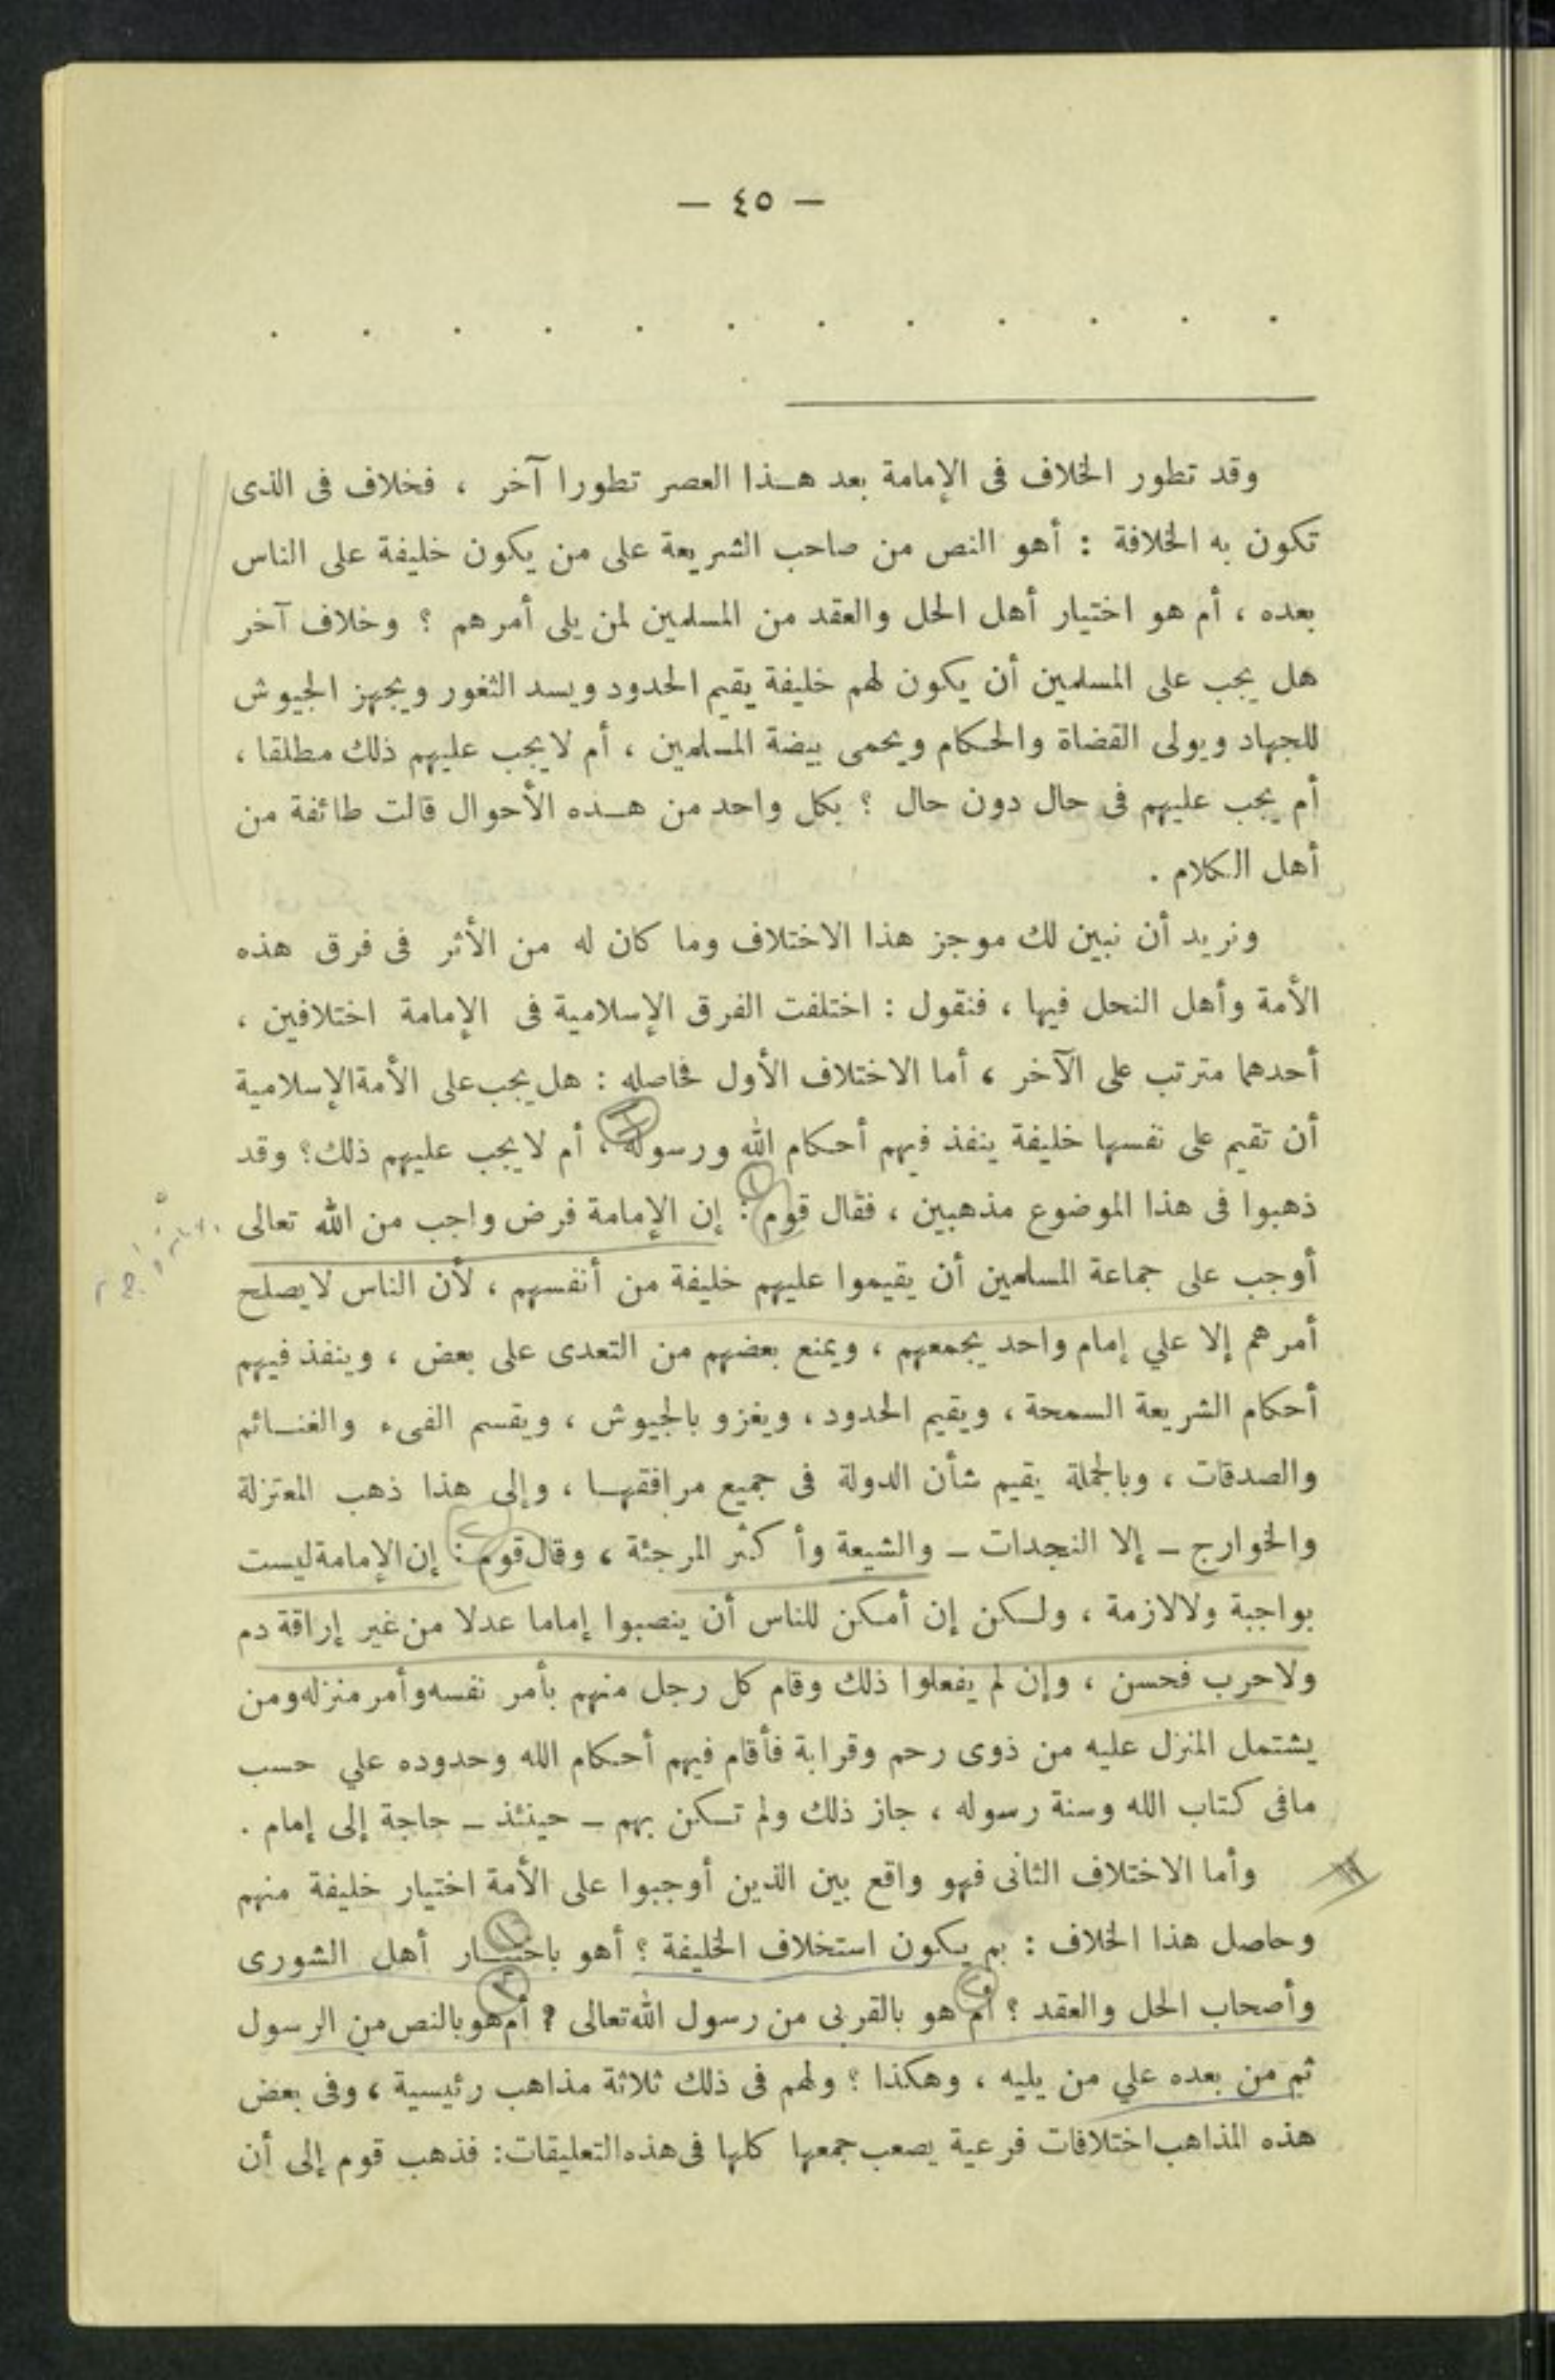 — ٤٥ —
. . . . . . . . . . . .
وقد تطور الخلاف فى الإمامة بعد هـذا العصر تطورا آخر ، فخلاف فى الذى
تكون به الخلافة : أهو النص من صاحب الشريعة على من يكون خليفة على الناس
بعده ، أم هو اختيار أهل الحل والعقد من المسلمين لمن يلى أمرهم ؟ وخلاف آخر
هل يجب على المسلمين أن يكون لهم خليفة يقيم الحدود ويسد الثغور ويجهز الجيوش
للجهاد ويولى القضاة والحكام ويحمى بيضة المسلمين ، أم لا يجب عليهم ذلك مطلقا ،
أم يجب عليهم فى حال دون حال ؟ بكل واحد من هـذه الأحوال قالت طائفة من
أهل الكلام .
ونريد أن نبين لك موجز هذا الاختلاف وما كان له من الأثر فى فرق هذه
الأمة وأهل النحل فيها ، فنقول : اختلفت الفرق الإسلامية فى الإمامة اختلافين ،
أحدهما مترتب على الآخر ، أما الاختلاف الأول فحاصله : هل يجب على الأمة الإسلامية
أن تقيم على نفسها خليفة ينفذ فيهم أحكام الله ورسوله ، أم لا يجب عليهم ذلك؟ وقد
ذهبوا فى هذا الموضوع مذهبين ، فقال قوم : إن الإمامة فرض واجب من الله تعالى
أوجب على جماعة المسلمين أن يقيموا عليهم خليفة من أنفسهم ، لأن الناس لا يصلح
أمرهم إلا علي إمام واحد يجمعهم ، ويمنع بعضهم من التعدى على بعض ، وينفذ فيهم
أحكام الشريعة السمحة ، ويقيم الحدود ، ويغزو بالجيوش ، ويقسم الفىء والغنـائم
والصدقات ، وبالجملة يقيم شأن الدولة فى جميع مرافقهـا ، وإلى هذا ذهب المعتزلة
والخوارج – إلا النجدات – والشيعة وأكثر المرجئة ، وقال قوم : إن الإمامة ليست
بواجبة ولا لازمة ، ولـكن إن أمكن للناس أن ينصبوا إماما عدلا من غير إراقة دم
ولا حرب فحسن ، وإن لم يفعلوا ذلك وقام كل رجل منهم بأمر نفسه وأمر منزله ومن
يشتمل المنزل عليه من ذوى رحم وقرابة فأقام فيهم أحكام الله وحدوده علي حسب
مافى كتاب الله وسنة رسوله ، جاز ذلك ولم تـكن بهم – حينئذ – حاجة إلى إمام .
وأما الاختلاف الثانى فهو واقع بين الذين أوجبوا على الأمة اختيار خليفة منهم
وحاصل هذا الخلاف : بم يكون استخلاف الخليفة ؟ أهو باختيـار أهل الشورى
وأصحاب الحل والعقد ؟ أم هو بالقربى من رسول الله تعالى ؟ أم هو بالنص من الرسول
ثم من بعده علي من يليه ، وهكذا ؟ ولهم فى ذلك ثلاثة مذاهب رئيسية ، وفى بعض
هذه المذاهب اختلافات فرعية يصعب جمعها كلها فى هذه التعليقات: فذهب قوم إلى أن